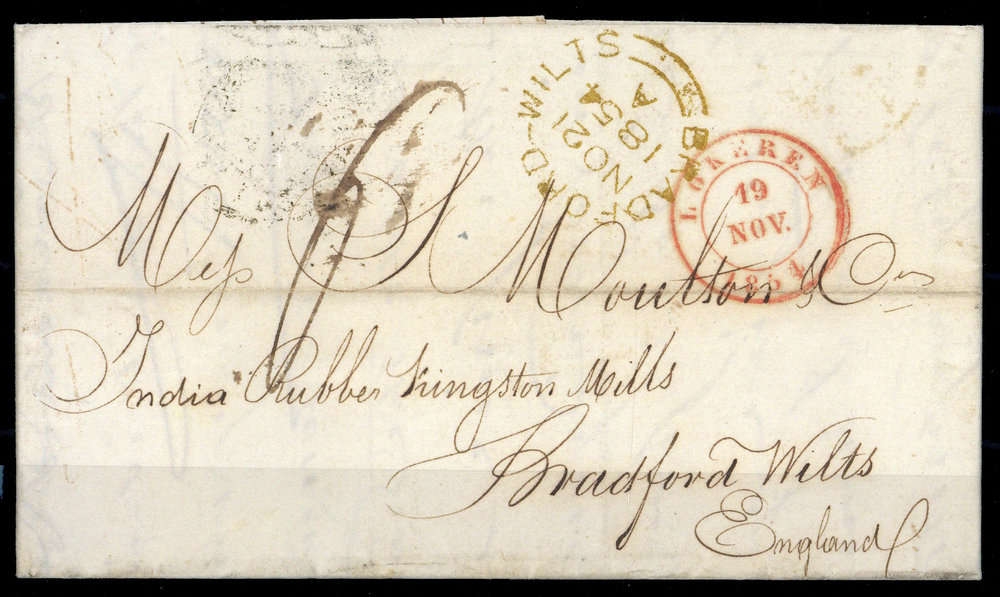 BRADFORD-WILTS
A
NO 21
185
4
LOKEREN
19
NOV.
1854
Mess S Moulton & Co
India Rubber Kingston Mills
Bradford Wilts
England